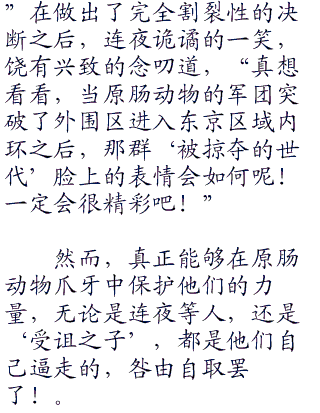 ”在做出了完全割裂性的决
断之后，连夜诡谲的一笑，
饶有兴致的念叨道，“真想
看看，当原肠动物的军团突
破了外围区进入东京区域内
环之后，那群‘被掠夺的世
代’脸上的表情会如何呢！
一定会很精彩吧！”
然而，真正能够在原肠
动物爪牙中保护他们的力
量，无论是连夜等人，还是
‘受诅之子’，都是他们自
己逼走的，咎由自取罢
了！。